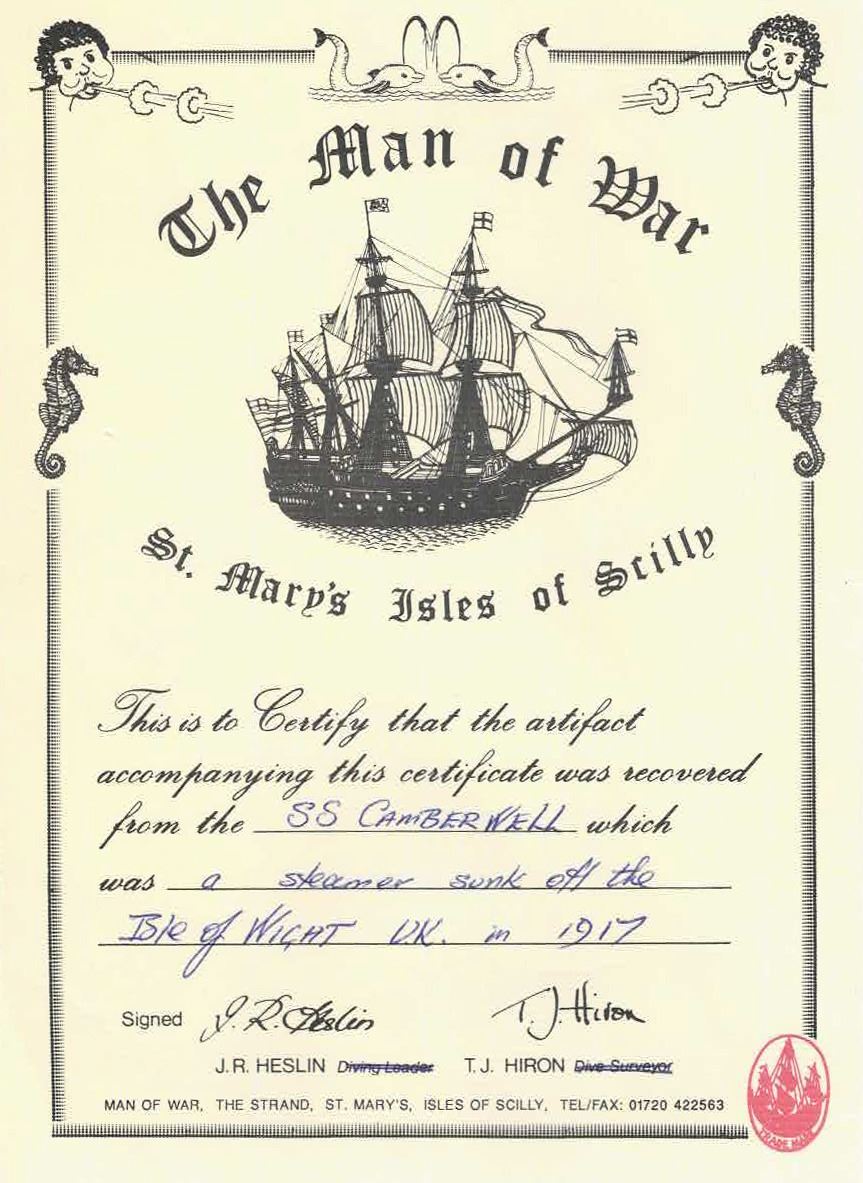 The Man of War
St. Mary's Isles of Scilly
This is to Certify that the artifact
accompanying this certificate was recovered
from the SS CAMBERWELL which
was a steamer sunk off the
Isle of WIGHT U.K. in 1917
Signed J.R. Heslin T.J. Hiron
J.R. HESLIN Diving Leader T.J. HIRON Dive Surveyor
MAN OF WAR, THE STRAND, ST. MARY'S, ISLES OF SCILLY, TEL/FAX: 01720 422563
TRADE MARK